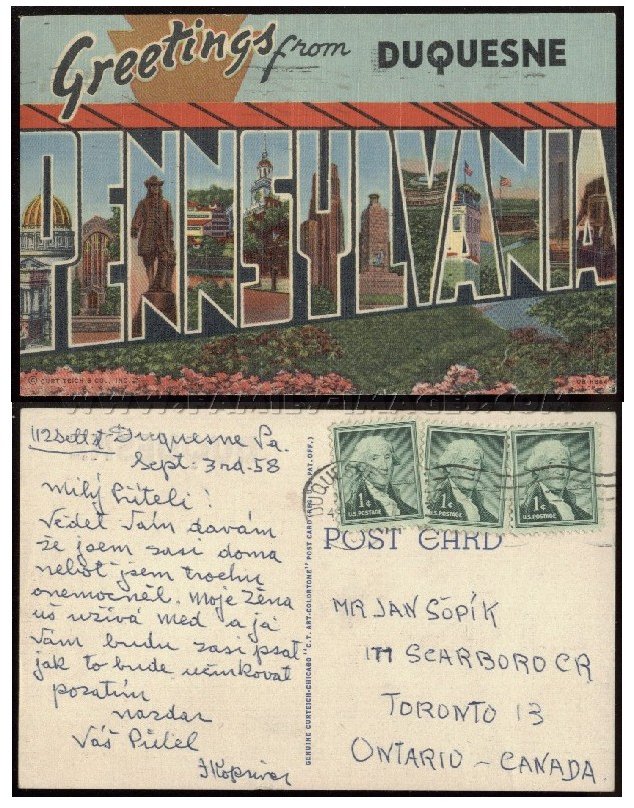 Greetings from DUQUESNE
PENNSYLVANIA
© CURT TEICH & CO., INC.
Duquesne Pa.
Sept. 3rd-58
Milý Příteli!
Vedet Vám davám
že jsem zasi doma
nebot jsem trochu
onemocněl. Moje žena
uš uzívá med a já
Vám budu zasi psat
jak to bude učinkovat
pozatím
nazdar
Váš Přítel
GENUINE CURTEICH-CHICAGO "C.T. ART-COLORTONE" POST CARD (REG. U.S. PAT. OFF.)
1¢ U.S. POSTAGE
1¢ U.S. POSTAGE
1¢ U.S. POSTAGE
POST CARD
MR JAN SOPÍK
171 SCARBORO CR
TORONTO 13
ONTARIO - CANADA.